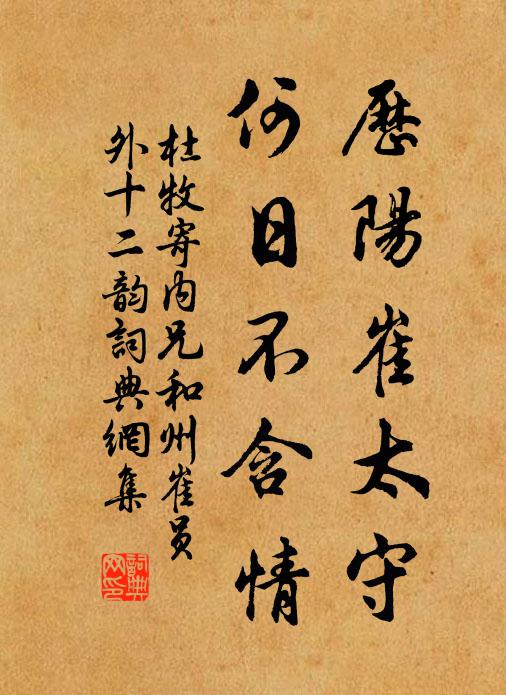 歷陽崔太守
何日不含情
杜牧寄內兄和州崔員
外十二韵詞典網集
詞典
网印